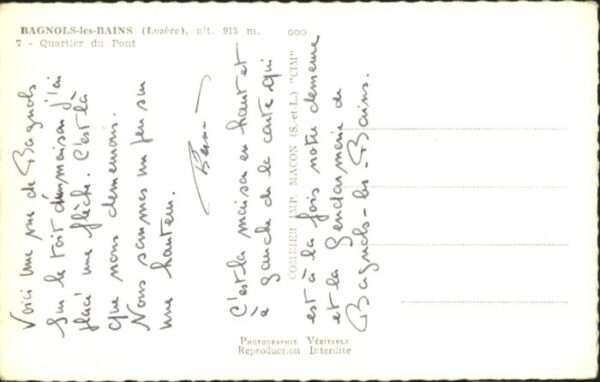 BAGNOLS-les-BAINS (Lozère), alt. 913 m.
7 - Quartier du Pont
Voici une vue de Bagnols
Sur le toit d'une maison j'ai
placé une flèche. C'est là
que nous demeurons.
Nous sommes un peu sur
une hauteur.
C'est la maison en haut et
à gauche de la carte qui
est à la fois notre demeure
et la Gendarmerie de
Bagnols-les-Bains.
COMBIER IMP. MACON (S.-et-L.) "CIM"
PHOTOGRAPHIE VÉRITABLE
Reproduction Interdite